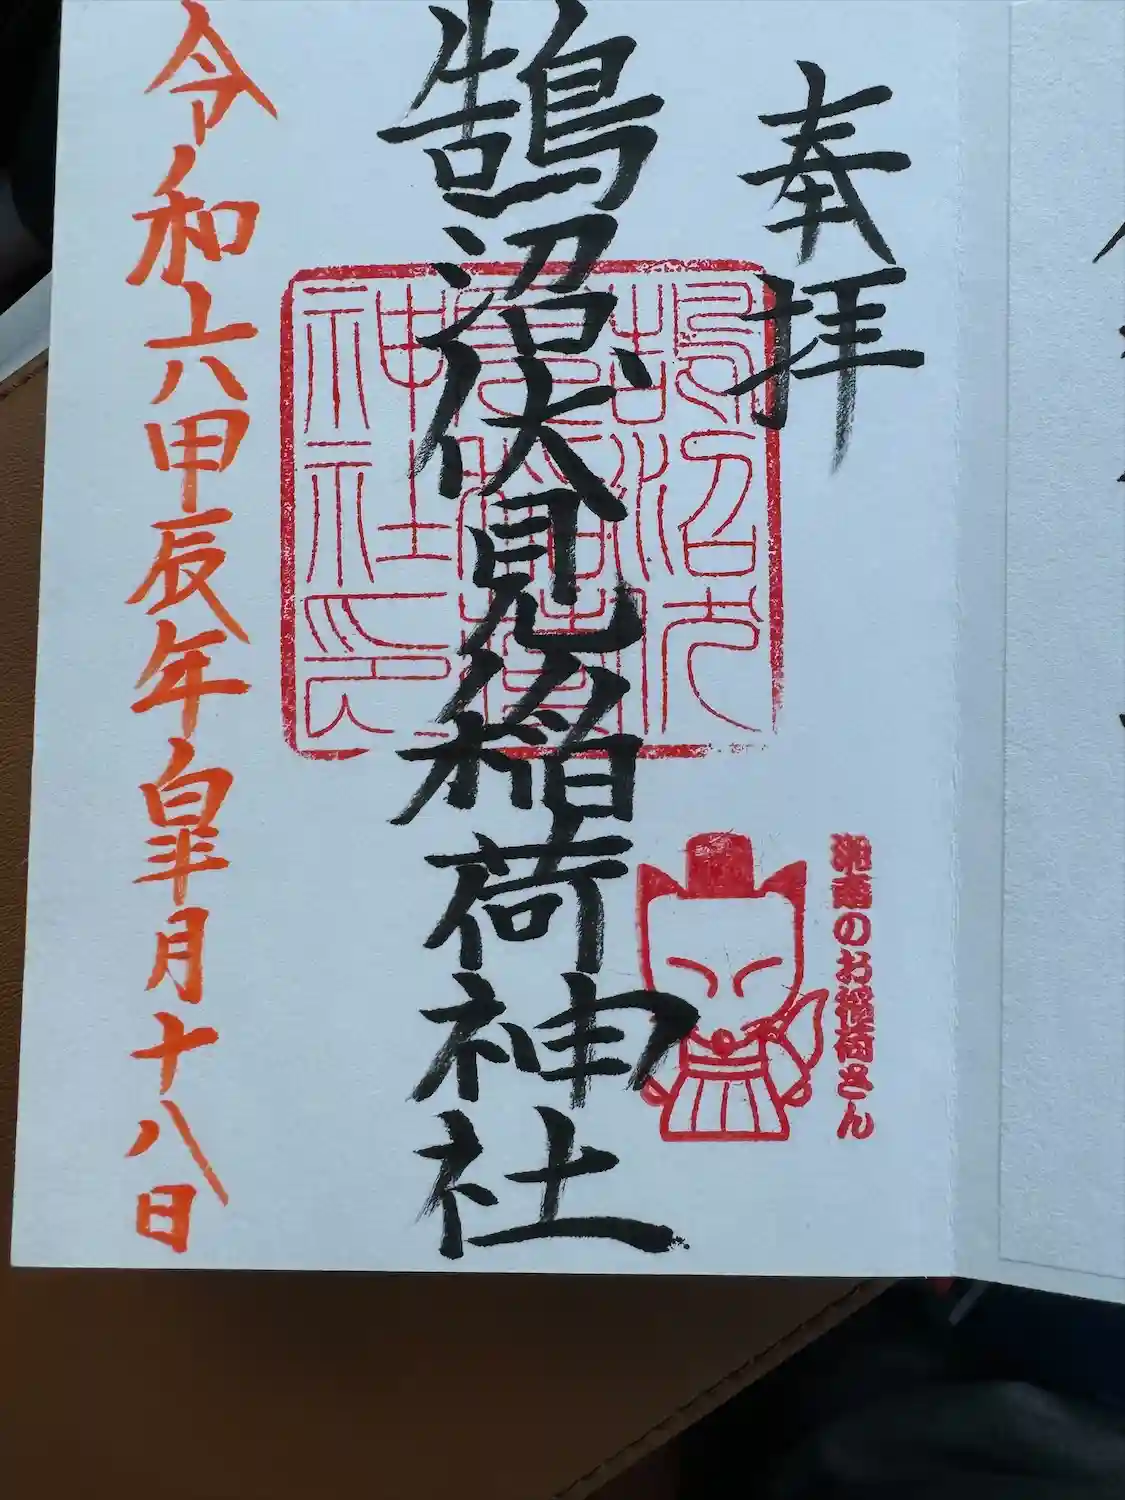 奉拝
鵠沼伏見稲荷神社
鵠沼伏
見稲荷
神社印
湘南のお稲荷さん
令和六甲辰年皐月十八日